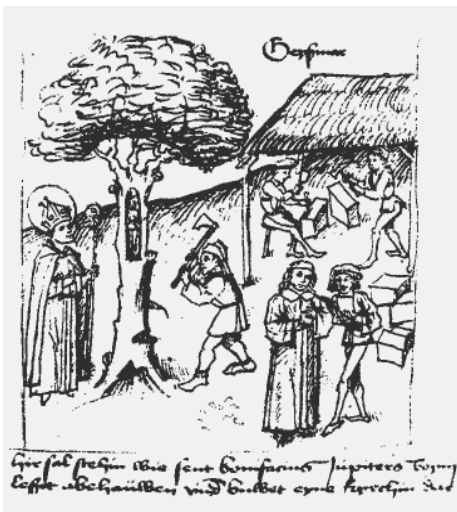 Geyßmar
hir sal stehin wie sent bonifacius Jupiters
lesset abehauwen und buwet eyne kirchin